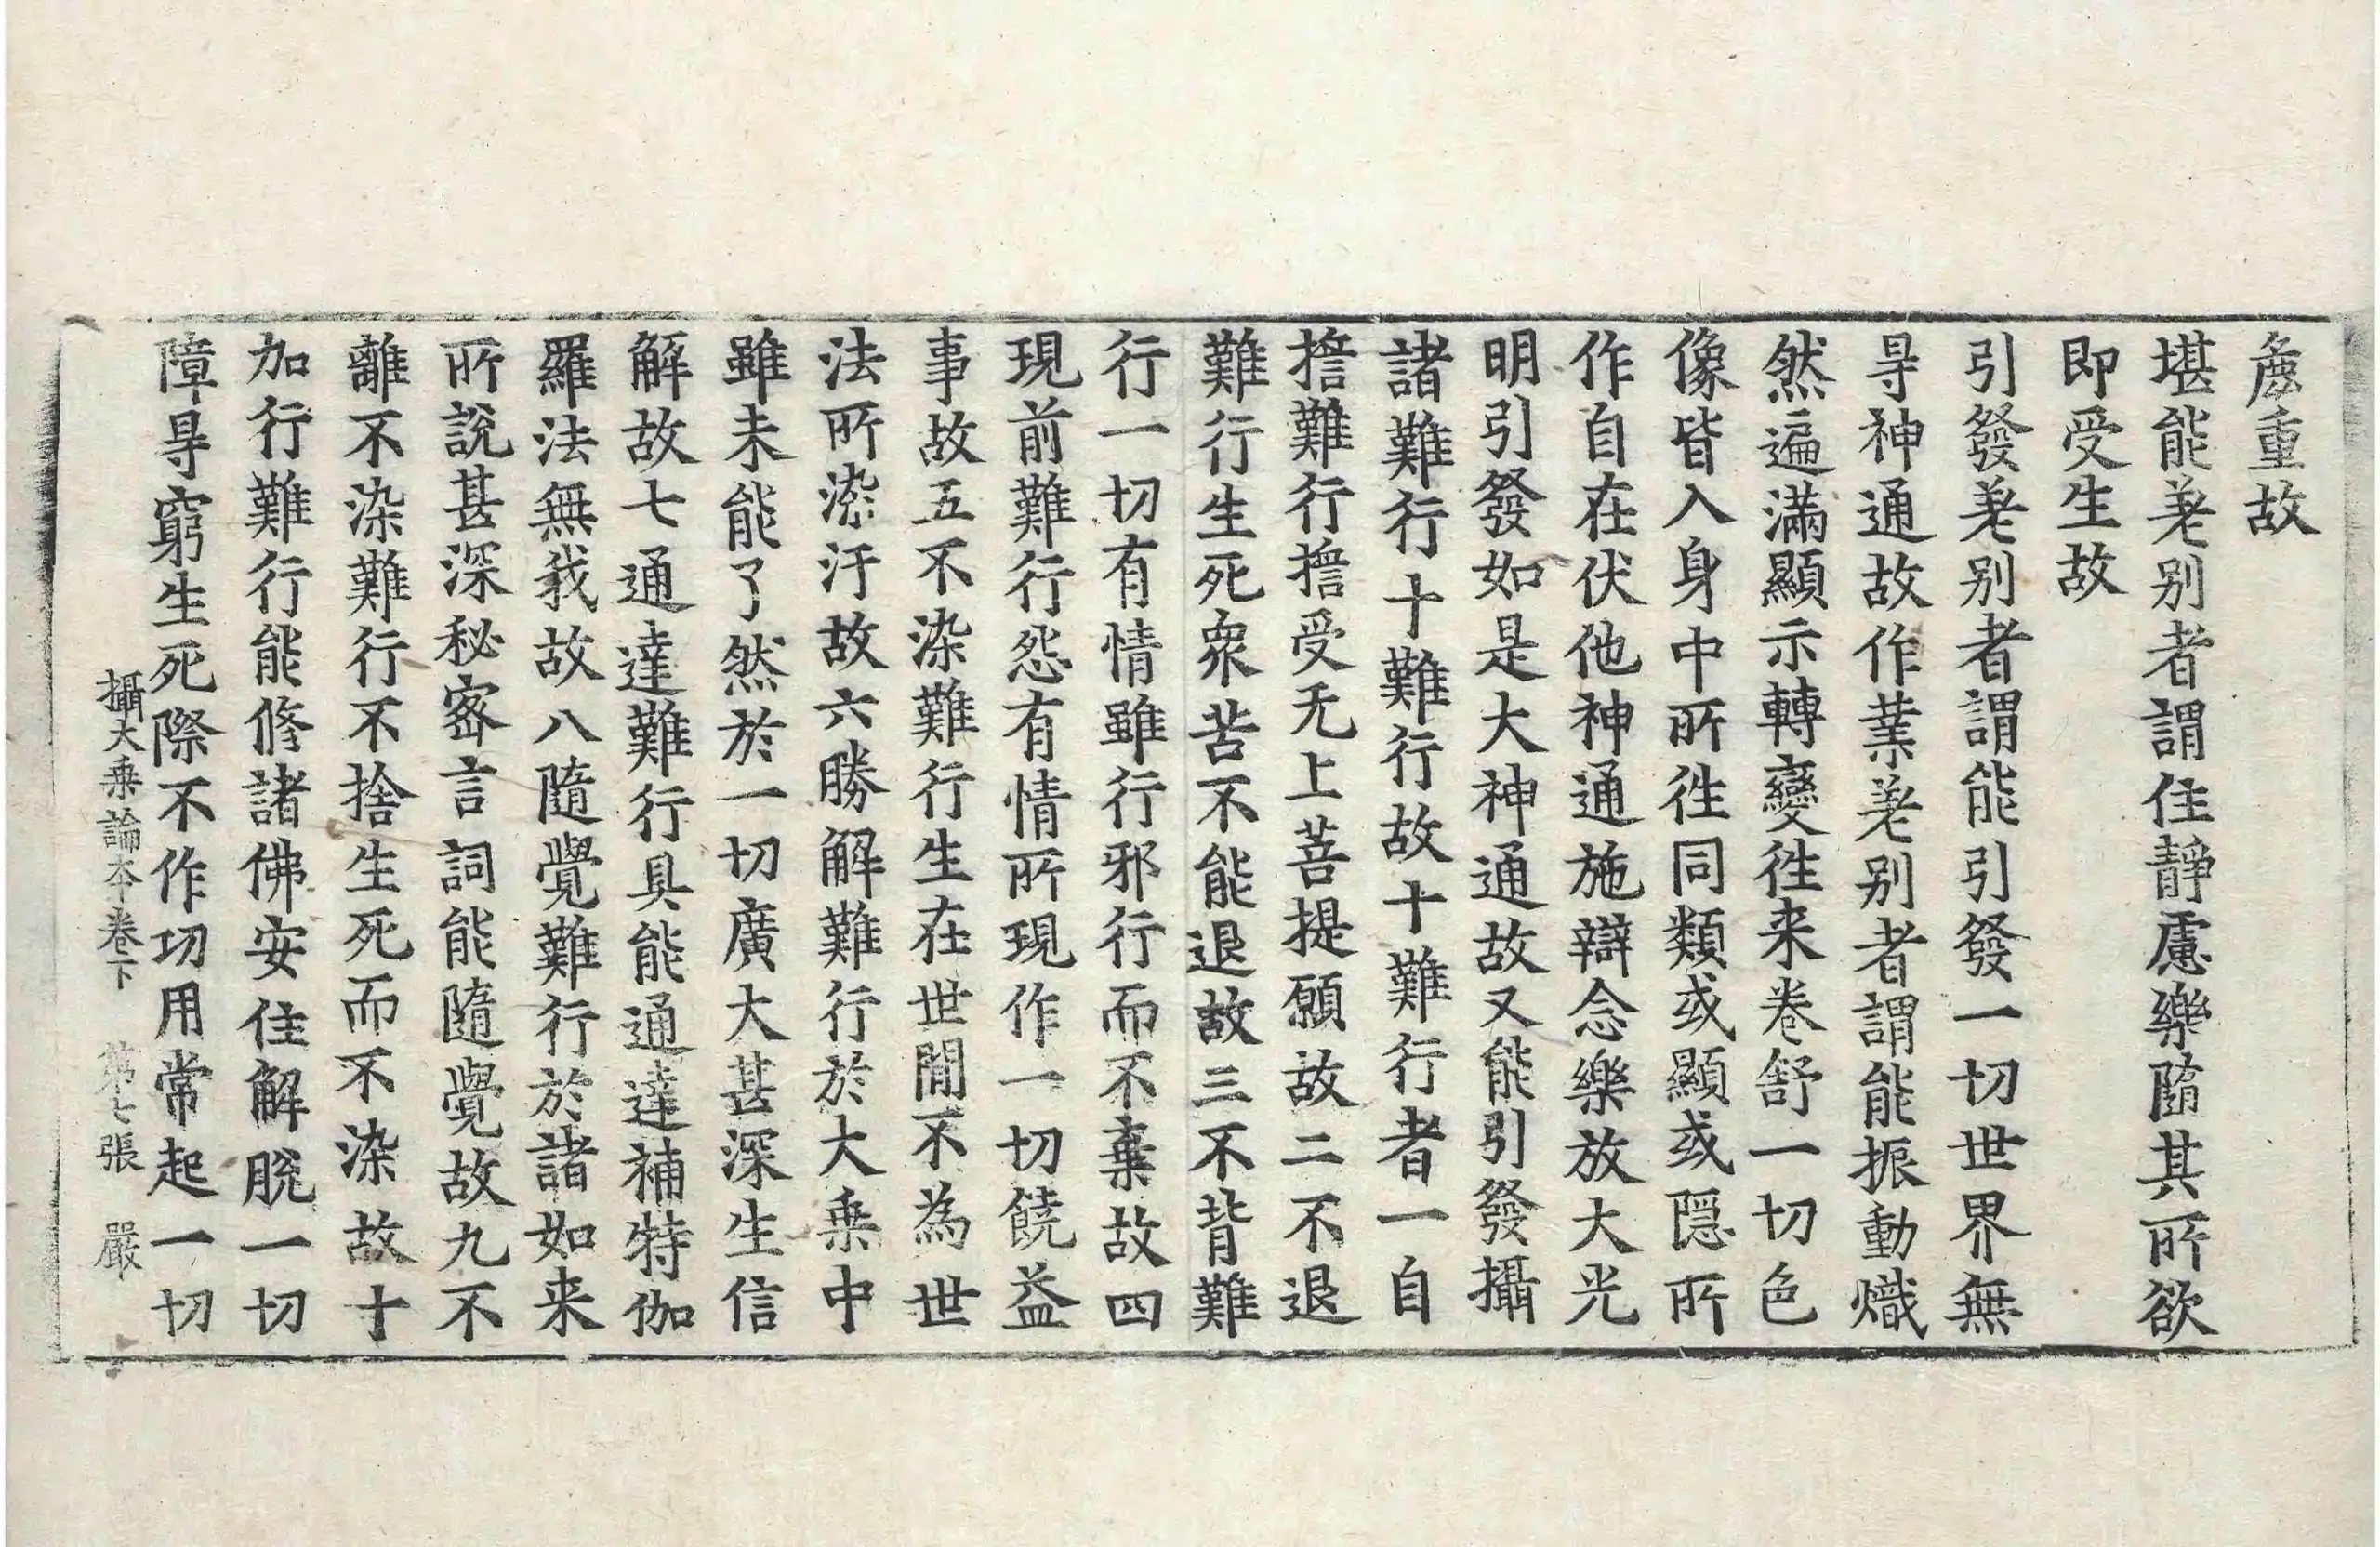 麁重故
堪能差别者謂住靜慮樂隨其所欲
即受生故
引發差别者謂能引發一切世界無
㝵神通故作業差别者謂能振動熾
然遍滿顯示轉變往来卷舒一切色
像皆入身中所往同類或顯或隠所
作自在伏他神通施辯念樂放大光
明引發如是大神通故又能引發攝
諸難行十難行故十難行者一自
擔難行擔受无上菩提願故二不退
難行生死衆苦不能退故三不背難
行一切有情雖行邪行而不棄故四
現前難行怨有情所現作一切饒益
事故五不染難行生在世間不為世
法所染汙故六勝解難行於大乗中
雖未能了然於一切廣大甚深生信
解故七通達難行具能通達補特伽
羅法無我故八隨覺難行於諸如来
所說甚深秘密言詞能隨覺故九不
離不染難行不捨生死而不染故十
加行難行能修諸佛安住解脫一切
障㝵窮生死際不作功用常起一切
攝大乗論本卷下 第七張 嚴